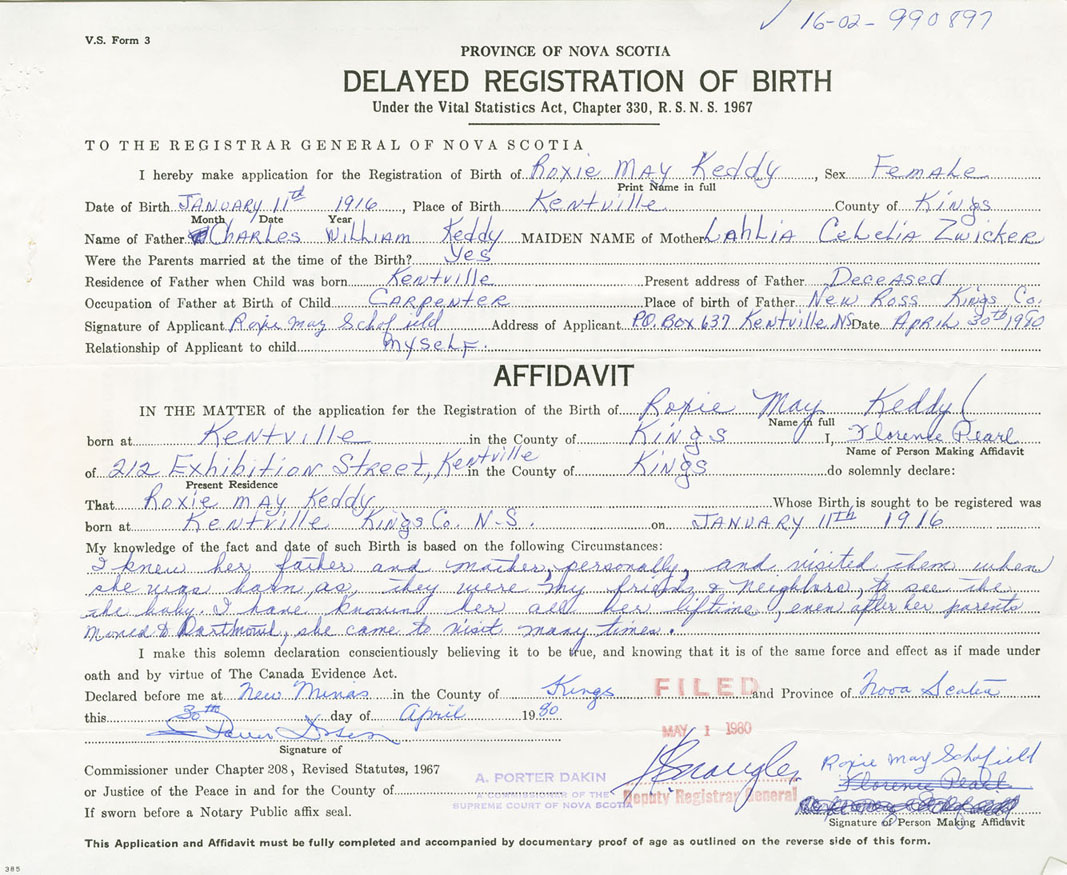 ✓ 16-02-990897
V.S. Form 3
PROVINCE OF NOVA SCOTIA
DELAYED REGISTRATION OF BIRTH
Under the Vital Statistics Act, Chapter 330, R.S.N.S. 1967
TO THE REGISTRAR GENERAL OF NOVA SCOTIA
I hereby make application for the Registration of Birth of Roxie May Keddy, Sex Female
Print Name in full
Date of Birth January 11th 1916, Place of Birth Kentville County of Kings
Month Date Year
Name of Father Charles William Keddy MAIDEN NAME of Mother Lahlia Celelia Zwicker
Were the Parents married at the time of the Birth? Yes
Residence of Father when Child was born Kentville Present address of Father Deceased
Occupation of Father at Birth of Child Carpenter Place of birth of Father New Ross Kings Co.
Signature of Applicant Roxie May Schofield Address of Applicant P.O. Box 637 Kentville, NS Date April 30th 1980
Relationship of Applicant to child myself.
AFFIDAVIT
IN THE MATTER of the application for the Registration of the Birth of Roxie May Keddy
Name in full
born at Kentville in the County of Kings I, Florence Pearl
Name of Person Making Affidavit
of 212 Exhibition Street, Kentville in the County of Kings do solemnly declare:
Present Residence
That Roxie May Keddy Whose Birth is sought to be registered was
born at Kentville Kings Co. N.S. on January 11th 1916
My knowledge of the fact and date of such Birth is based on the following Circumstances:
I knew her father and mother, personally, and visited them when
she was born as they were my friends & neighbors, to see the
the baby. I have known her all her lifetime, even after her parents
moved to Dartmouth, she came to visit many times.
I make this solemn declaration conscientiously believing it to be true, and knowing that it is of the same force and effect as if made under
oath and by virtue of The Canada Evidence Act.
Declared before me at New Minas in the County of Kings and Province of Nova Scotia
FILED
this 30th day of April 1980
MAY 1 1980
Signature of
Commissioner under Chapter 208, Revised Statutes, 1967
or Justice of the Peace in and for the County of
If sworn before a Notary Public affix seal.
A. PORTER DAKIN
A COMMISSIONER OF THE
SUPREME COURT OF NOVA SCOTIA
Deputy Registrar General
Roxie May Schofield
Florence Pearl
Signature of Person Making Affidavit
This Application and Affidavit must be fully completed and accompanied by documentary proof of age as outlined on the reverse side of this form.
385